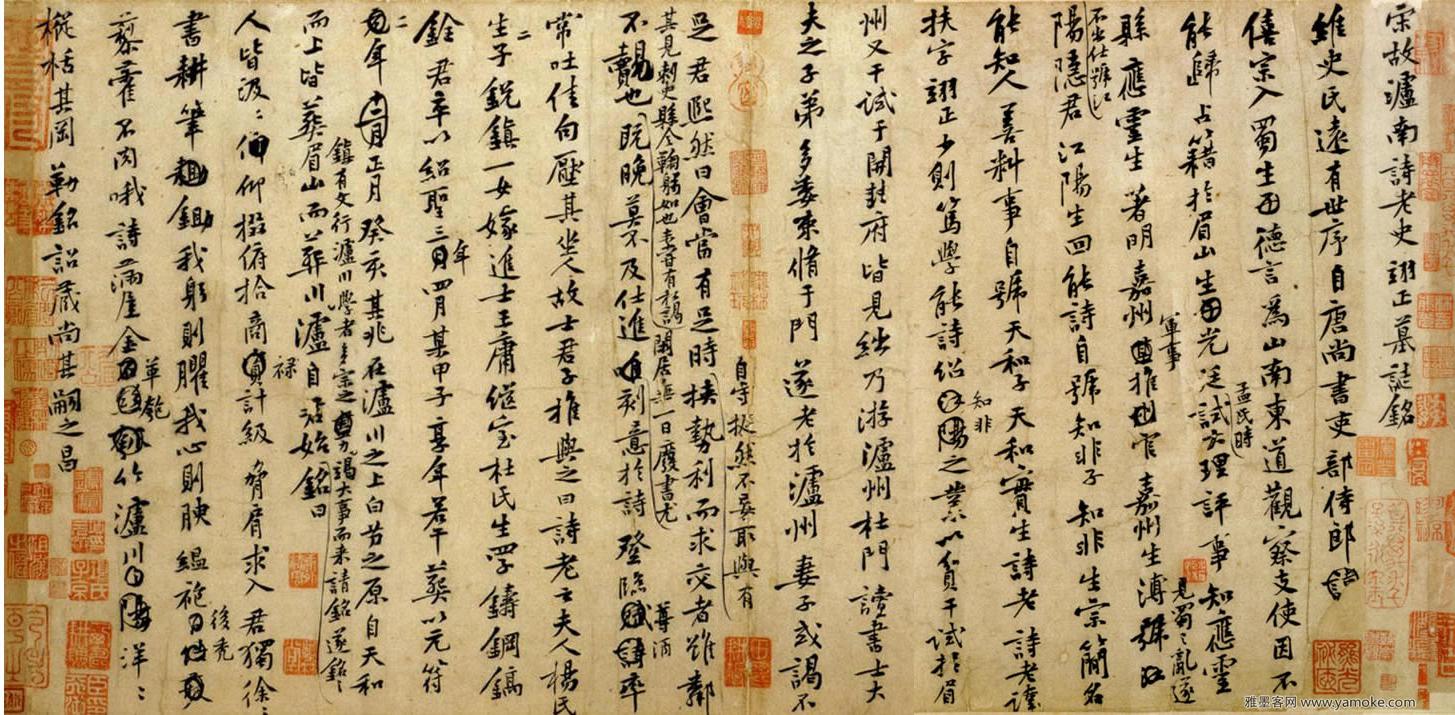 宋故瀘南詩老史翊正墓誌銘
維史氏遠有世序自唐尚書吏部侍郎
僖宗入蜀生德言為山南東道觀察支使因不
能歸占籍於眉山生光廷試大理評事知應靈
孟氏時
縣應靈生著明嘉州推官嘉州生溥
軍事
見蜀之亂遂
不出仕號江
陽隱君江陽生回能詩自號知非子知非生宗簡名
能知人善料事自號天和子天和實生詩老詩老諱
扶字翊正少則篤學能詩紹之業以貢干試於眉
知非
州又干試于開封府皆見絀乃游瀘州杜門讀書士大
夫之子弟多委束脩于門遂老於瀘州妻子或謁不
自守擬然不妄取與有
足君熙然曰會當有足時挾勢利而求交者雖鄰
其見刺史縣令鞠躬如也未嘗有私謁閑居無一日廢書尤
不覿也既晚莫不及仕進刻意於詩登臨率
尊酒
常吐佳句壓其坐人故士君子推與之曰詩老云夫人楊氏
生二子銳鎮一女嫁進士王庸繼室杜氏生四子鑄鋼鎬
銓君卒以紹聖三年四月某甲子享年若干葬以元符
二年正月癸亥其兆在瀘川之上白芀之原自天和
鎮有文行瀘川學者多宗之竭大事而來請銘遂銘之
而上皆葬眉山而葬川瀘自始銘曰
祿
人皆汲汲仰掇俯拾商計級脅肩求入君獨徐徐
書耕筆耡我躬則臞我心則腴縕袍
後禿
藜藿不肉哦詩滿屋金竹瀘川洋洋
革匏
樅栝其岡勒銘詔藏尚其嗣之昌
雅墨客网 www.yamoke.com